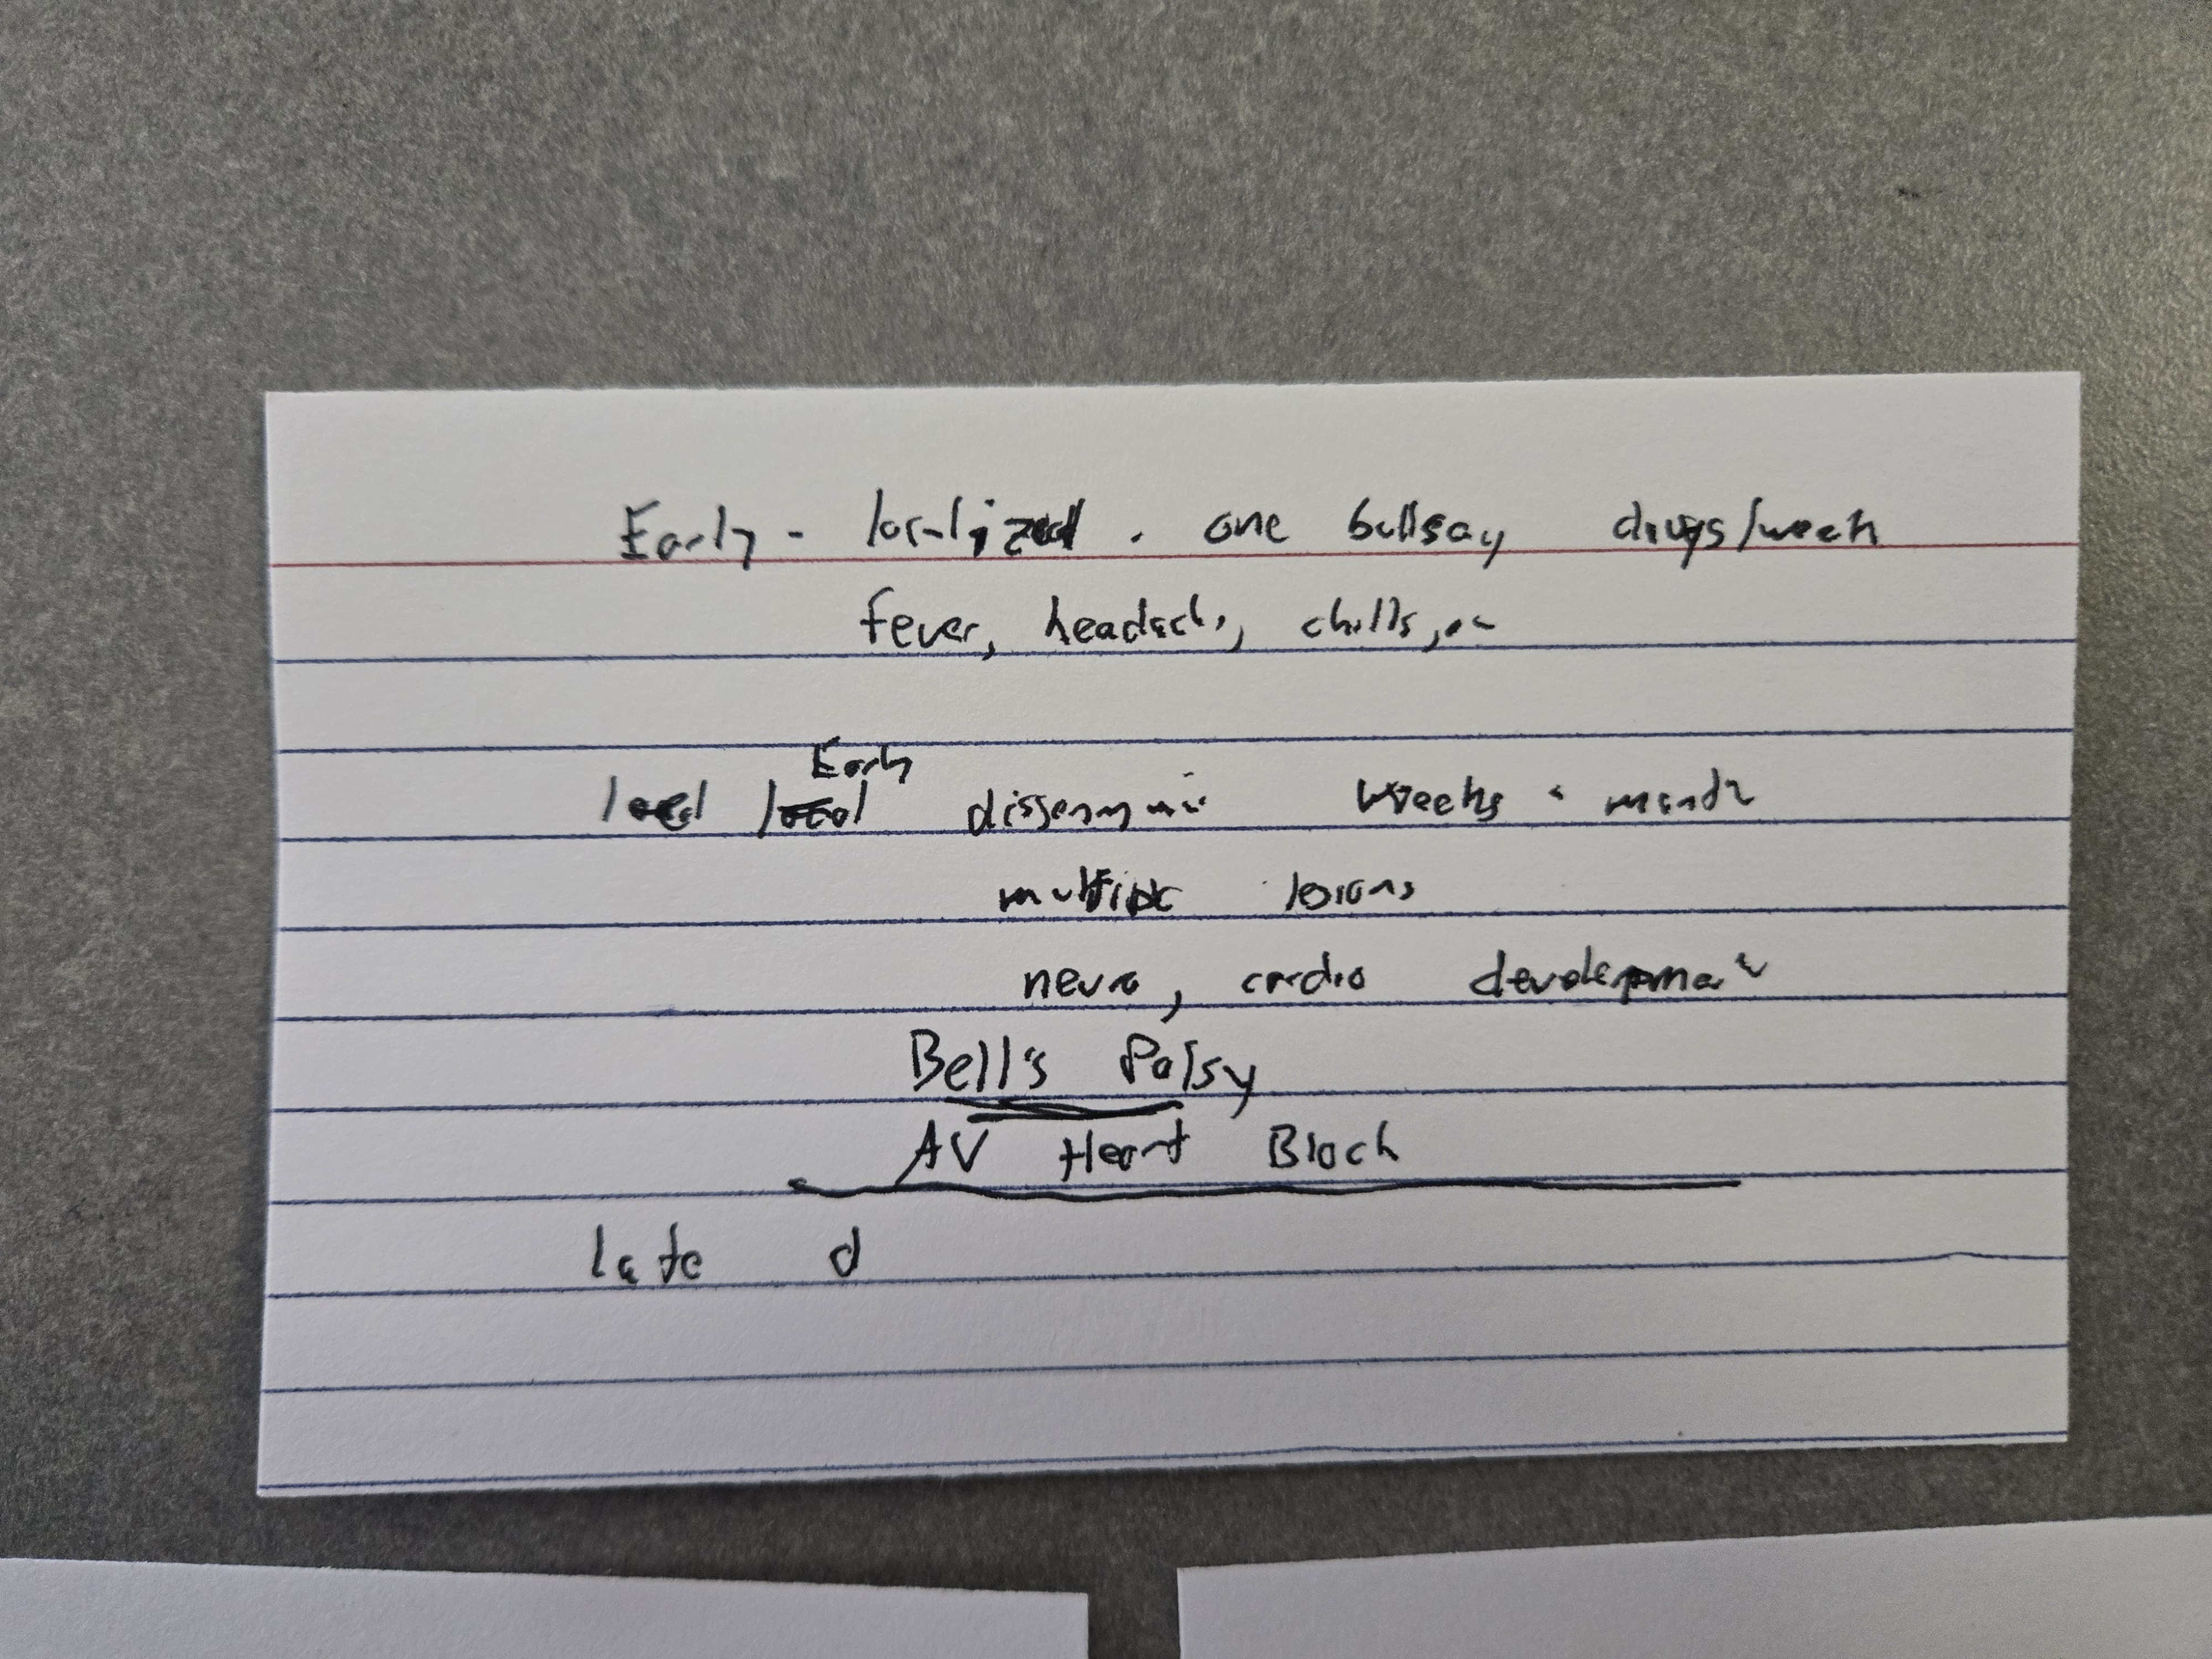 Early - localized . one bullsay days/week
fever, headach, chills,
Early
dissemini weeks - month
multiple lesions
neuro, cardio development
Bell's Palsy
AV Heart Block
late d